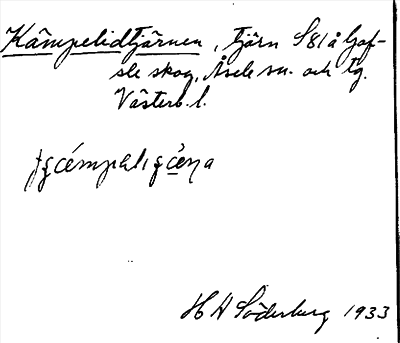 Kämpelidtjärnen, tjärn S 81 å Gaf-
sele skog, Åsele sn. och tg.
Västerb. l.
H A Söderberg 1933